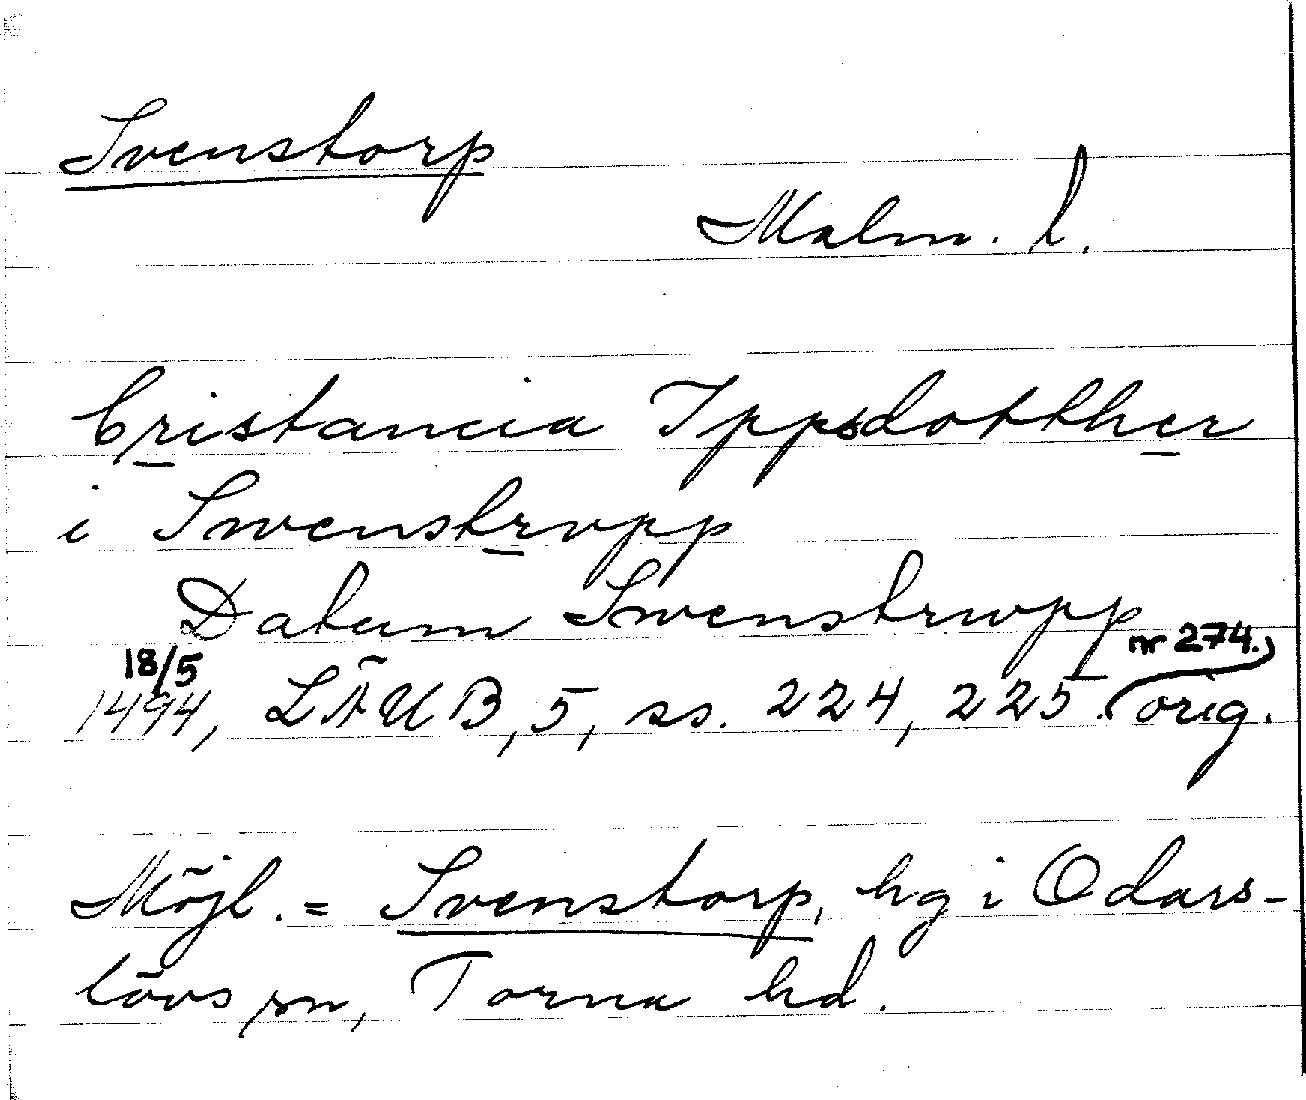 Svenstorp
Malm. l.
Cristancia Ippsdotther
i Swenstrvpp
Datum Swenstrwpp
18/5 nr 274.)
1494, LÄUB, 5, ss. 224, 225. (orig.
Möjl. = Svenstorp, hg i Odars-
lövs sn, Torna hd.